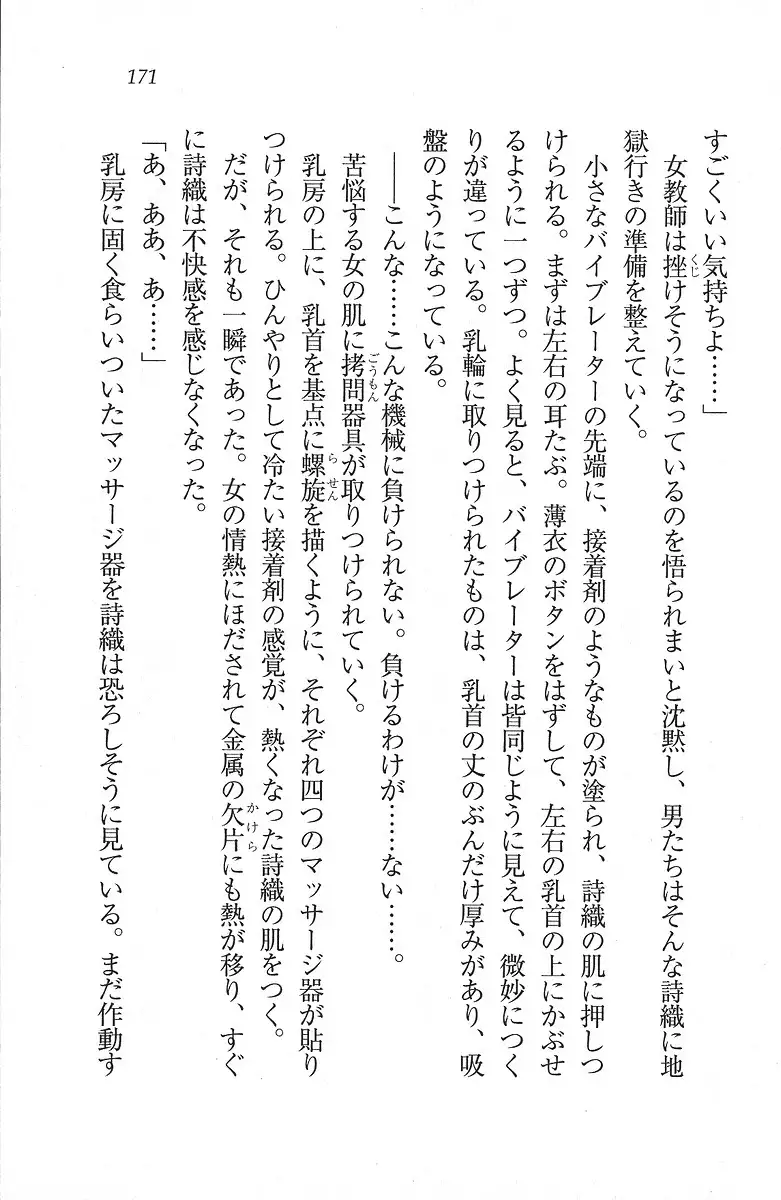 171
すごくいい気持ちよ……」
　女教師は挫けそうになっているのを悟られまいと沈黙し、男たちはそんな詩織に地
くじ
獄行きの準備を整えていく。
　小さなバイブレーターの先端に、接着剤のようなものが塗られ、詩織の肌に押しつ
けられる。まずは左右の耳たぶ。薄衣のボタンをはずして、左右の乳首の上にかぶせ
るように一つずつ。よく見ると、バイブレーターは皆同じように見えて、微妙につく
りが違っている。乳輪に取りつけられたものは、乳首の丈のぶんだけ厚みがあり、吸
盤のようになっている。
　――こんな……こんな機械に負けられない。負けるわけが……ない……。
　苦悩する女の肌に拷問器具が取りつけられていく。
ごうもん
　乳房の上に、乳首を基点に螺旋を描くように、それぞれ四つのマッサージ器が貼り
らせん
つけられる。ひんやりとして冷たい接着剤の感覚が、熱くなった詩織の肌をつく。
　だが、それも一瞬であった。女の情熱にほだされて金属の欠片にも熱が移り、すぐ
かけら
に詩織は不快感を感じなくなった。
「あ、ああ、あ……」
　乳房に固く食らいついたマッサージ器を詩織は恐ろしそうに見ている。まだ作動す